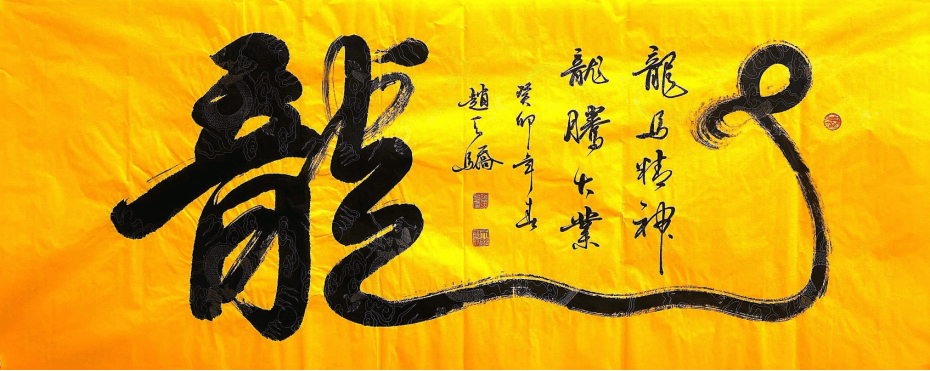 龍
龍馬精神
龍騰大業
癸卯年春
趙天驕